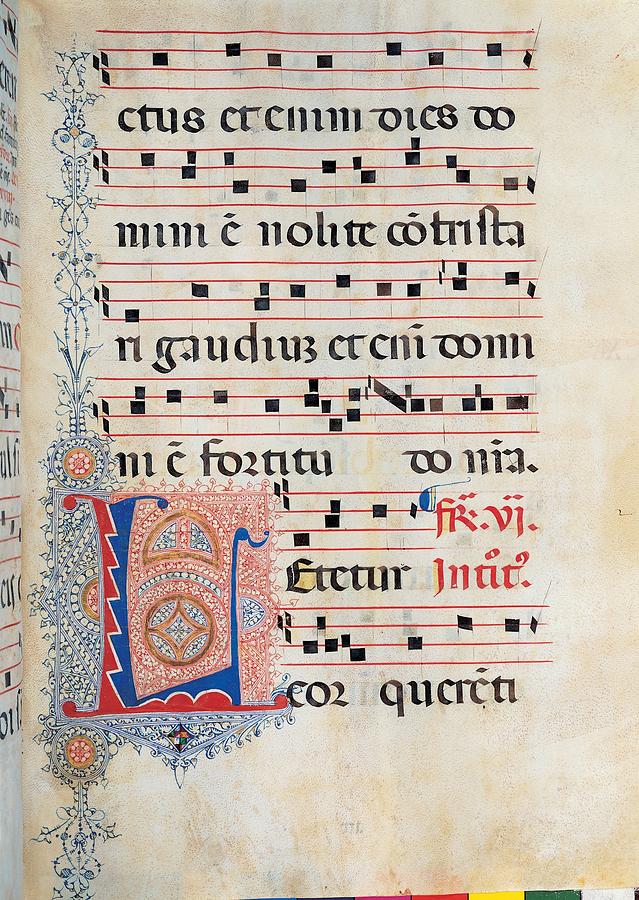 ctus et enim dies do
mini ē nolite cōtrista
ri gaudiuʒ et eni domi
ni ē fortitu do nr̄a.
fr̄. vj.
Etetur Intoit.
cor querēti